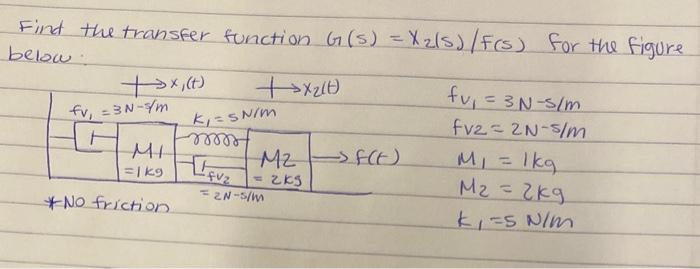 Find the transfer function G(s) = X2(s)/F(s) for the figure
below:
x1(t) x2(t)
fv1 = 3N-s/m K1 = 5N/m
M1 = 1kg fv2 = 2N-s/m M2 = 2kg f(t)
*No friction
fv1 = 3N-s/m
fv2 = 2N-s/m
M1 = 1kg
M2 = 2kg
K1 = 5 N/m